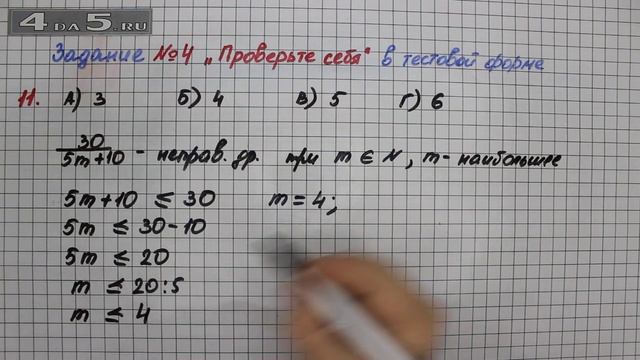 4DA5.RU
Задание №4 „Проверьте себя" в тестовой форме
11. А) 3 Б) 4 В) 5 Г) 6
30/5m+10 - неправ. др. при m ∈ N, m- наибольшее
5m+10 ≤ 30 m = 4;
5m ≤ 30-10
5m ≤ 20
m ≤ 20:5
m ≤ 4